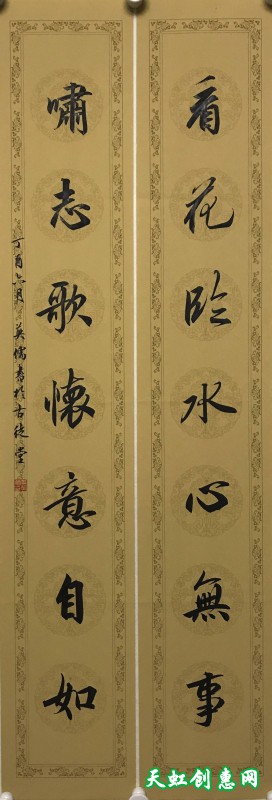 看花临水心無事
嘯志歌懷意自如
丁酉六月英儒書於古徒堂
天虹创惠网